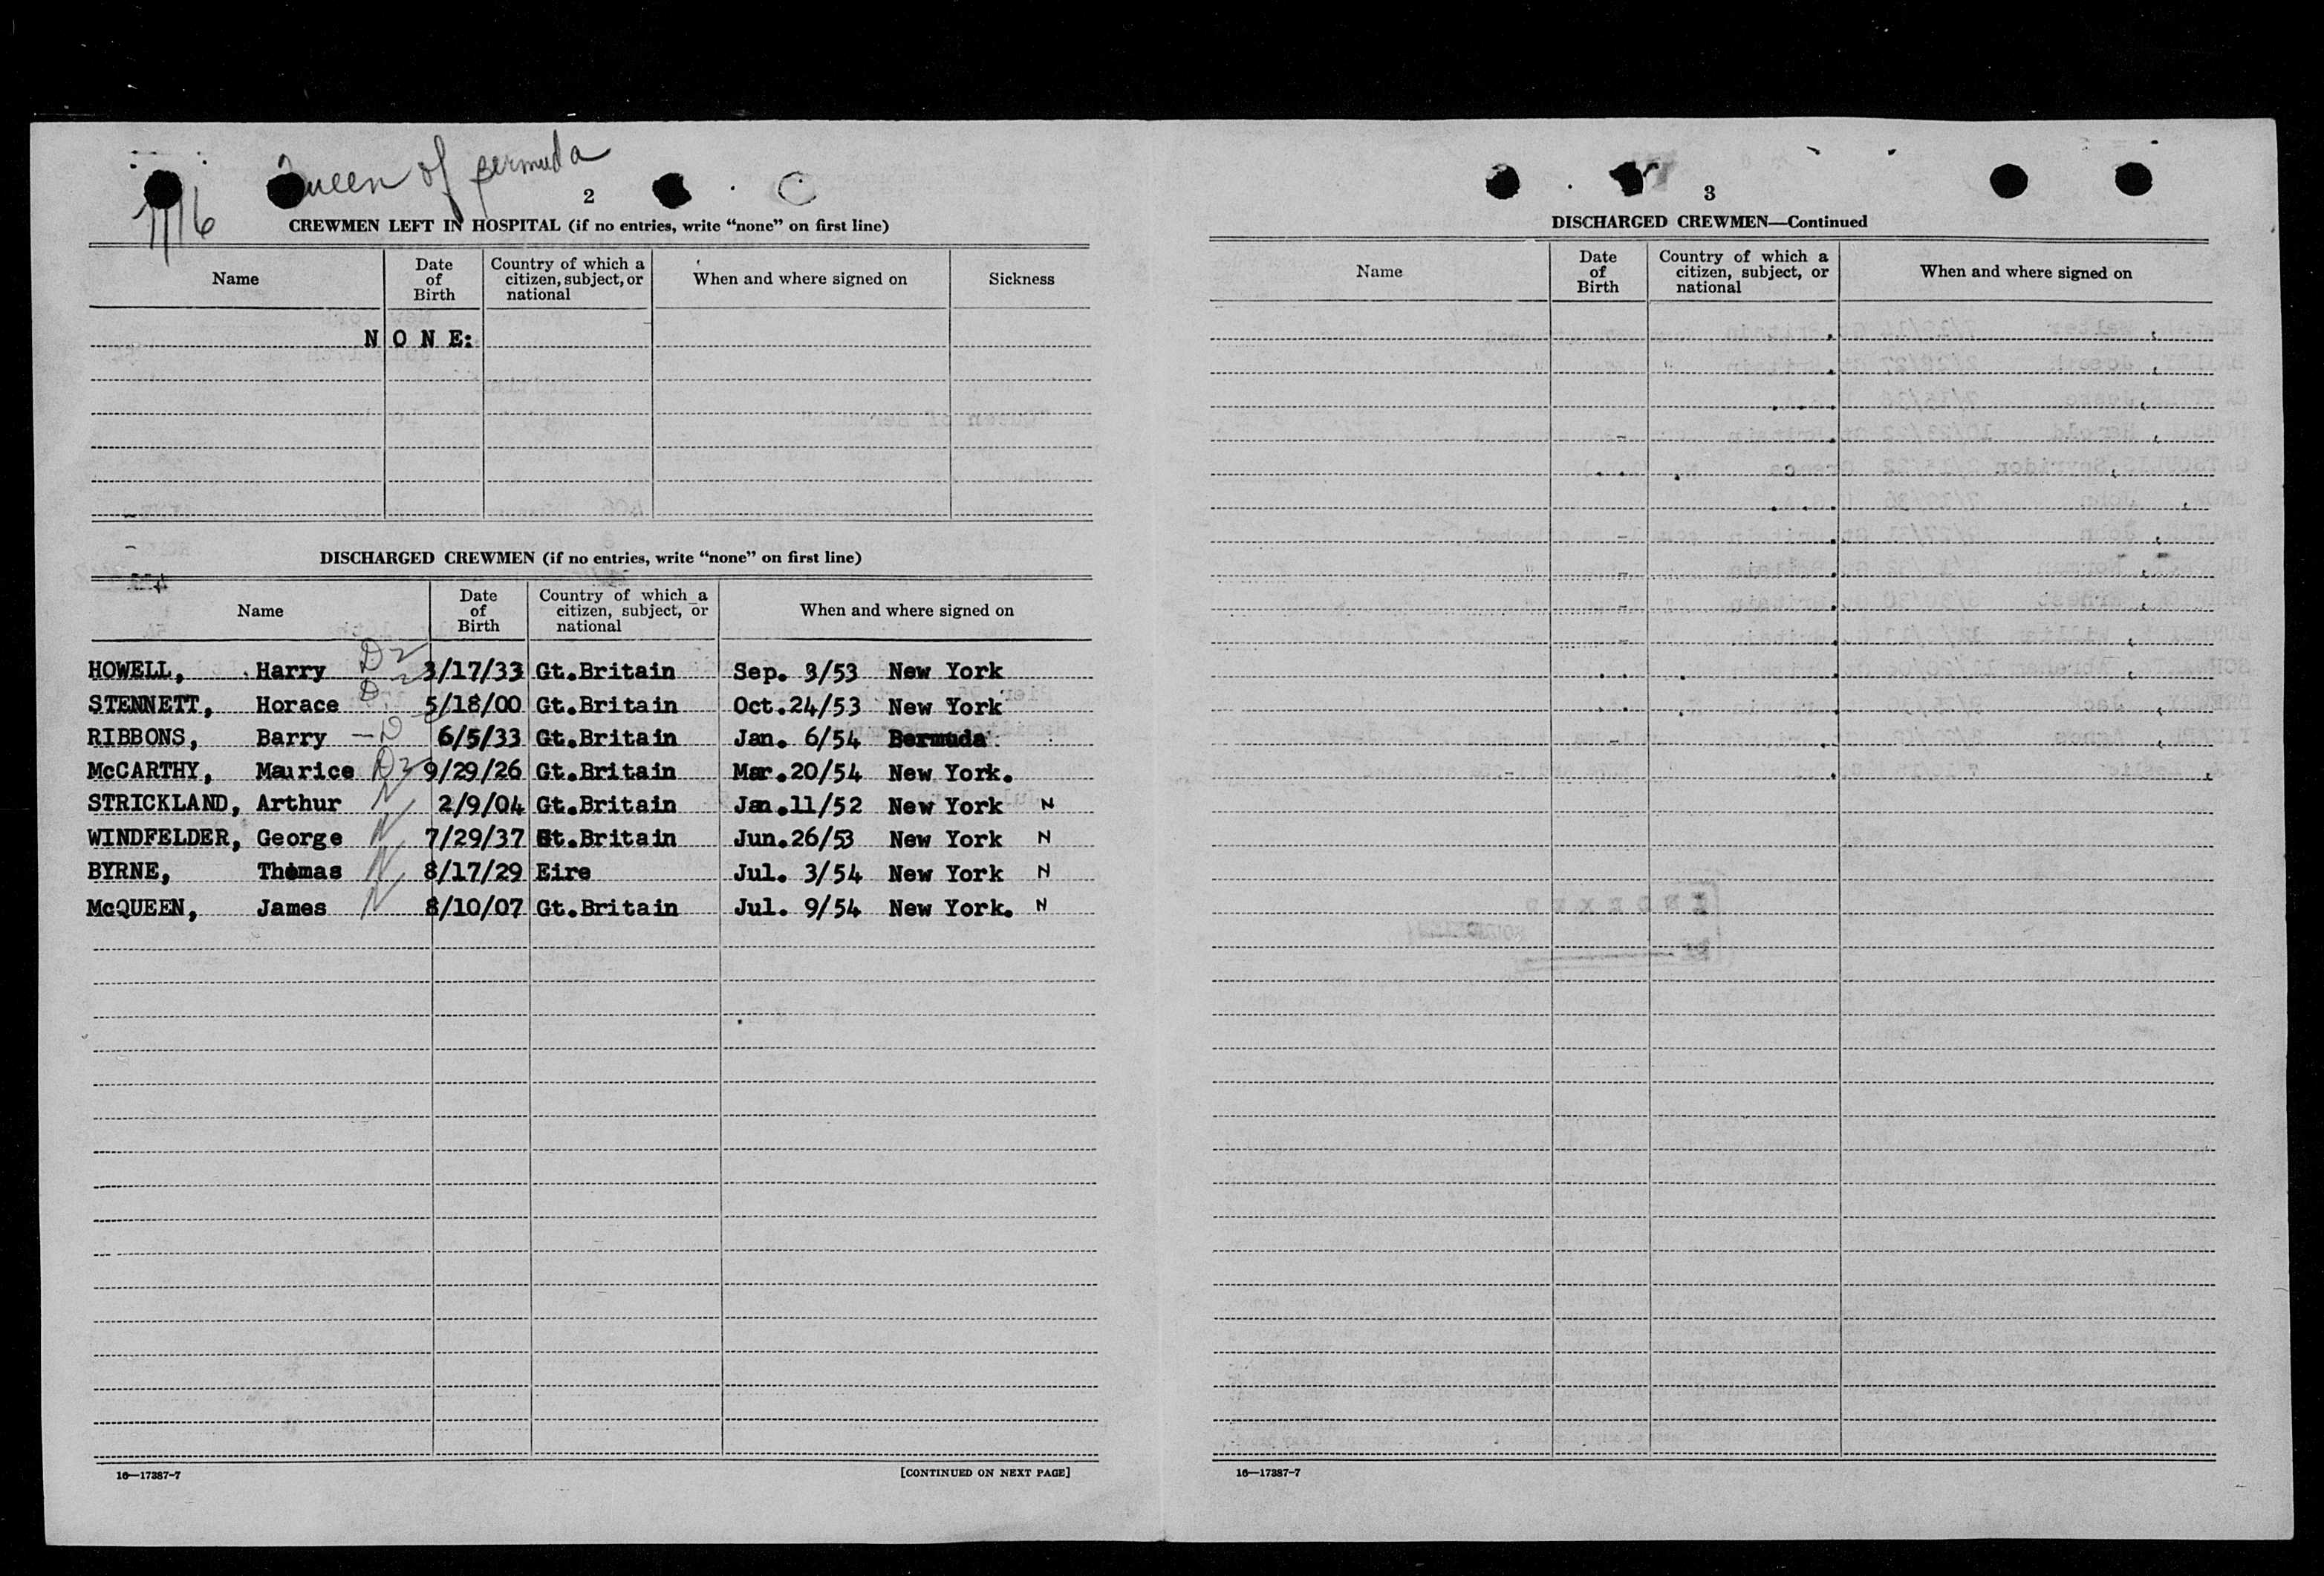 Queen of Bermuda
7/16
2
CREWMEN LEFT IN HOSPITAL (if no entries, write “none” on first line)
Name
Date of Birth
Country of which a citizen, subject, or national
When and where signed on
Sickness
N O N E:
DISCHARGED CREWMEN (if no entries, write “none” on first line)
Name
Date of Birth
Country of which a citizen, subject, or national
When and where signed on
HOWELL, Harry D2 3/17/33 Gt.Britain Sep. 3/53 New York
STENNETT, Horace D2 5/18/00 Gt.Britain Oct.24/53 New York
RIBBONS, Barry — D2 6/5/33 Gt.Britain Jan. 6/54 Bermuda
McCARTHY, Maurice D2 9/29/26 Gt.Britain Mar.20/54 New York.
STRICKLAND, Arthur N 2/9/04 Gt.Britain Jan.11/52 New York N
WINDFELDER, George N 7/29/37 Gt.Britain Jun.26/53 New York N
BYRNE, Thomas N 8/17/29 Eire Jul. 3/54 New York N
McQUEEN, James N 8/10/07 Gt.Britain Jul. 9/54 New York. N
16—17387-7
[CONTINUED ON NEXT PAGE]
3
DISCHARGED CREWMEN—Continued
Name
Date of Birth
Country of which a citizen, subject, or national
When and where signed on
16—17387-7